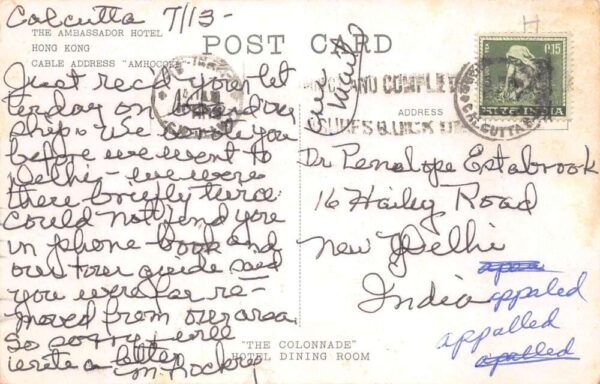 Calcutta 7/13-
THE AMBASSADOR HOTEL
HONG KONG
CABLE ADDRESS "AMHOCO
POST CARD
Just rec'd your let
ter day on board our
ship. We wrote you
before we went to
Delhi - we were
there briefly twice.
Could not find you
in phone book and
our tour guide said
you were far re-
moved from our area.
So sorry, will
write a letter
"THE COLONNADE"
HOTEL DINING ROOM
air
mail
AND COMPLETE
ADDRESS
CALCUTTA
0.15
INDIA
Dr Penelope Estabrook
16 Hailey Road
New Delhi
India
appaled
appalled
appalled